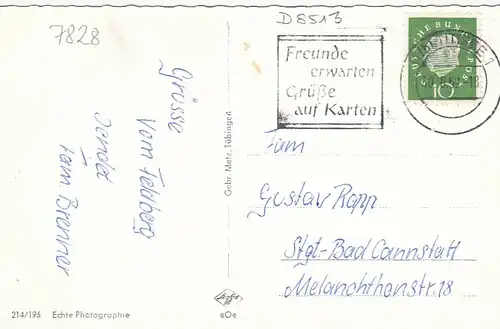 7828
D8513
Grüsse
vom Feldberg
sendet
Fam. Brenner
Gebr. Metz, Tübingen
Freunde
erwarten
Grüße
auf Karten
DEUTSCHE BUNDESPOST
10
Fam.
Gustav Rapp
Stgt-Bad Cannstatt
Melanchthonstr. 18
214/196 Echte Photographie
Agfa